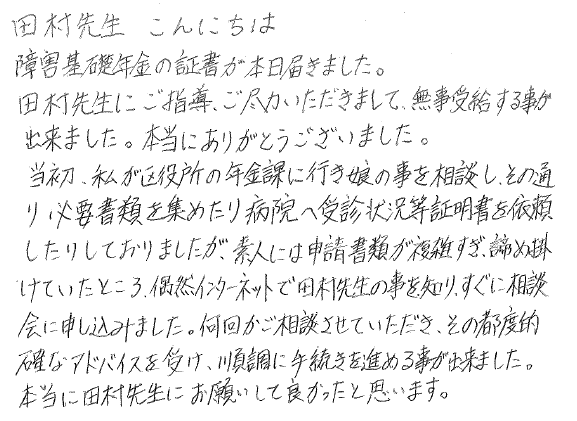 田村先生 こんにちは
障害基礎年金の証書が本日届きました。
田村先生にご指導、ご尽力いただきまして、無事受給する事が
出来ました。本当にありがとうございました。
当初、私が区役所の年金課に行き娘の事を相談し、その通
り必要書類を集めたり病院へ受診状況等証明書を依頼
したりしておりましたが、素人には申請書類が複雑すぎ、諦め掛
けていたところ、偶然インターネットで田村先生の事を知り、すぐに相談
会に申し込みました。何回かご相談させていただき、その都度的
確なアドバイスを受け、順調に手続きを進める事が出来ました。
本当に田村先生にお願いして良かったと思います。